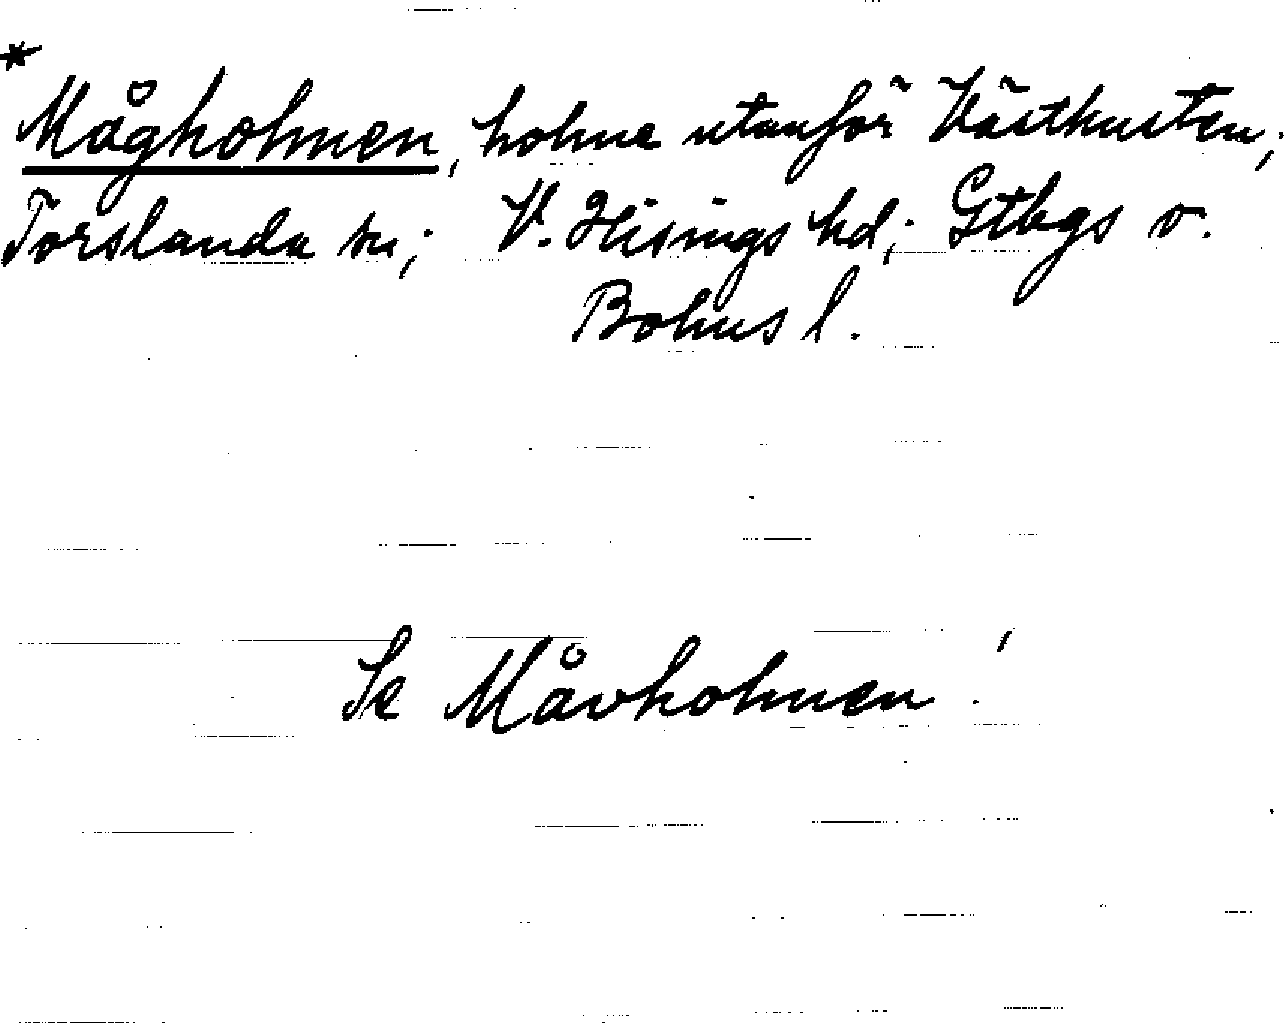 *
Mågholmen, holme utanför Västkusten;
Torslanda sn; V. Hisings hd; Gtbgs o.
Bohus l.
Se Måvholmen!